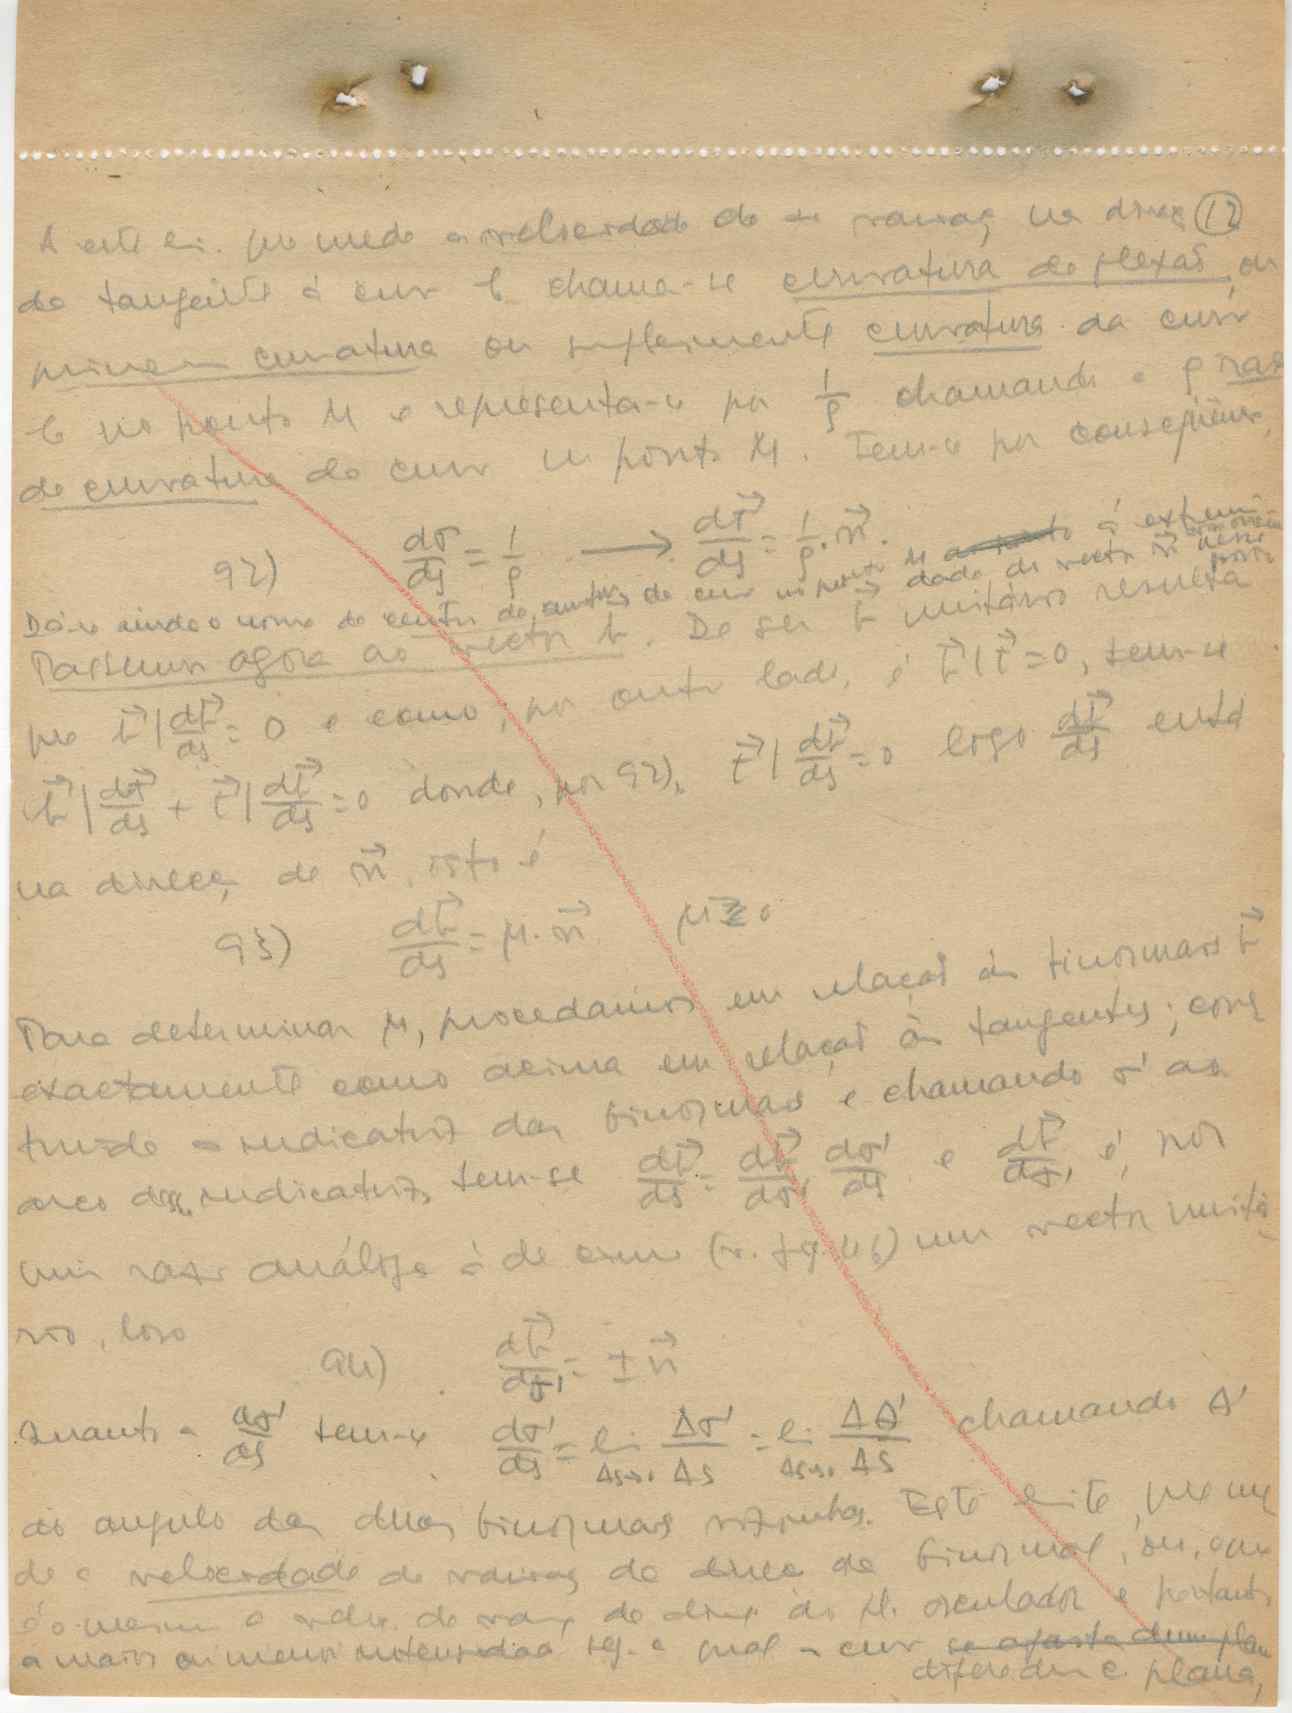 A este li. que mede a velocidade de variaç na direcç (12)
da tangente á cur C chama-se curvatura de flexaõ, ou
primeira curvatura ou simplesmente curvatura da curv
C no ponto M e representa-se por 1/ρ chamando a ρ raio
de curvatura da curv no ponto M. Tem-se por consequinc,
92) dσ/ds = 1/ρ ⟶ dt⃗/ds = 1/ρ · n⃗.
Dá-se ainda o nome de centro de curvatura da cur no ponto M á extrem
dado do vector n⃗ nesse ponto
Passemos agora ao vector b⃗. De ser b⃗ unitário resulta
que b⃗|db⃗/ds = 0 e como, por outro lado, é b⃗|t⃗ = 0, tem-se
b⃗|dt⃗/ds + t⃗|db⃗/ds = 0 donde, por 92), t⃗|db⃗/ds = 0 logo db⃗/ds está
na direcç de n⃗, isto é
93) db⃗/ds = μ·n⃗ μ ≷ 0
Para determinar μ, procedamos em relaçaõ ás binormais b⃗
exactamente como acima em relaçaõ ás tangentes; cons
truido a indicatriz das binormais e chamando σ' ao
arco dess. indicatriz, tem-se db⃗/ds = db⃗/dσ' dσ'/ds e db⃗/dσ' é, por
uma razaõ análoga á de cima (v. fig. 46) um vector unitá
rio, logo
94) db⃗/dσ' = ± n⃗
Quanto a dσ'/ds tem-se dσ'/ds = li Δs→0 Δσ'/Δs = li Δs→0 Δθ'/Δs chamando θ'
ao angulo das duas binormais vizinhas. Este limite, que me
de a velocidade de variaç da direcç da binormal, ou, o que
é o mesmo a veloc. de varç da direcç do pl. osculador e portanto
a maior ou menor intensidade seg. a qual a cur se afasta dum plan
difere de ser plana,